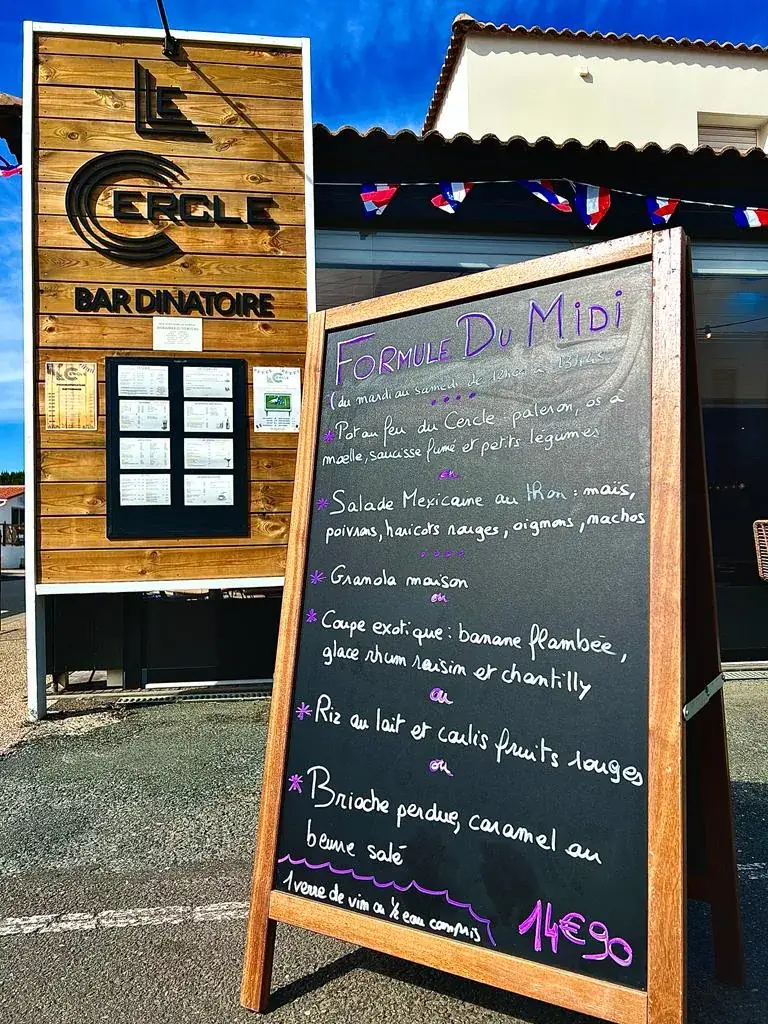 LE
CERCLE
BAR DINATOIRE
FORMULE DU MIDI
(du mardi au samedi de
* Pot au feu du Cercle: paleron, os à
moelle, saucisse fumé et petits légumes
ou
* Salade Mexicaine au thon : maïs,
poivrons, haricots rouges, oignons, nachos
* Granola maison
ou
* Coupe exotique : banane flambée,
glace rhum raisin et chantilly
ou
* Riz au lait et coulis fruits rouges
ou
* Brioche perdue, caramel au
beurre salé
1 verre de vin ou ½ eau compris
14€90